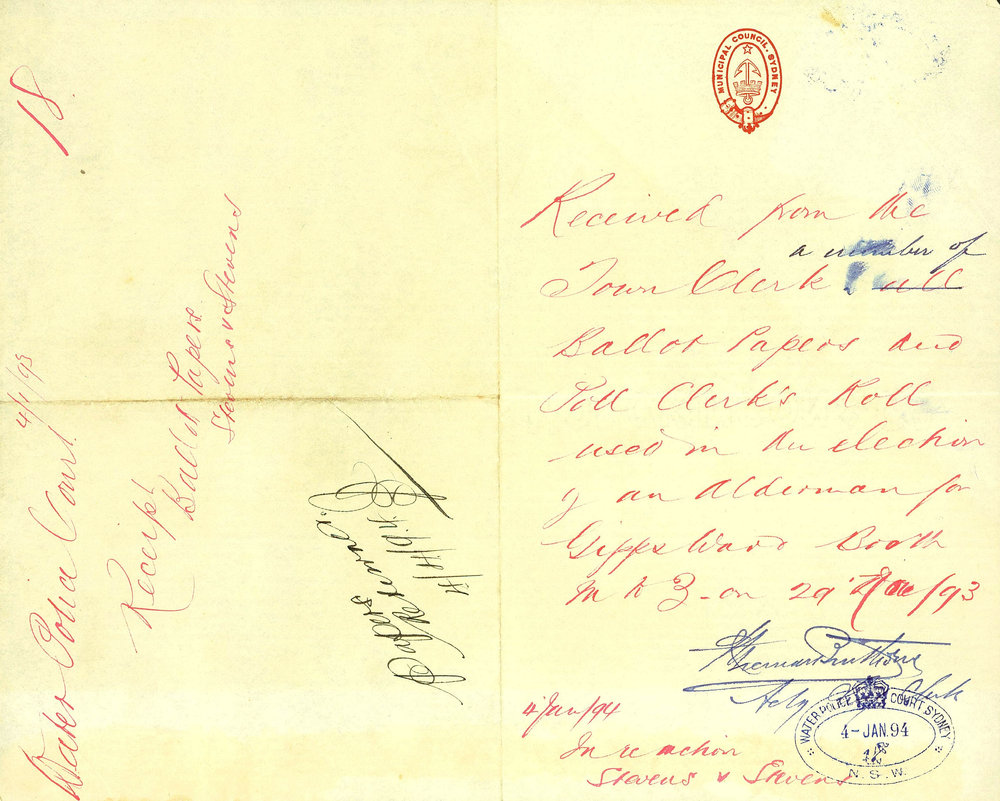 18
Water Police Court
4/1/93
Receipt
Ballot Papers
Stevens v Stevens
Papers
Returned
4/4/94
MUNICIPAL COUNCIL. SYDNEY
Received from the
a number of
Town Clerk all
Ballot Papers and
Poll Clerk's Roll
used in the election
of an Alderman for
Gipps Ward Booth
No 3 - on 29 Dec/93
Actg Clerk
4 Jan/94
In re action
Stevens v Stevens
WATER POLICE COURT SYDNEY
4-JAN.94
N.S.W.